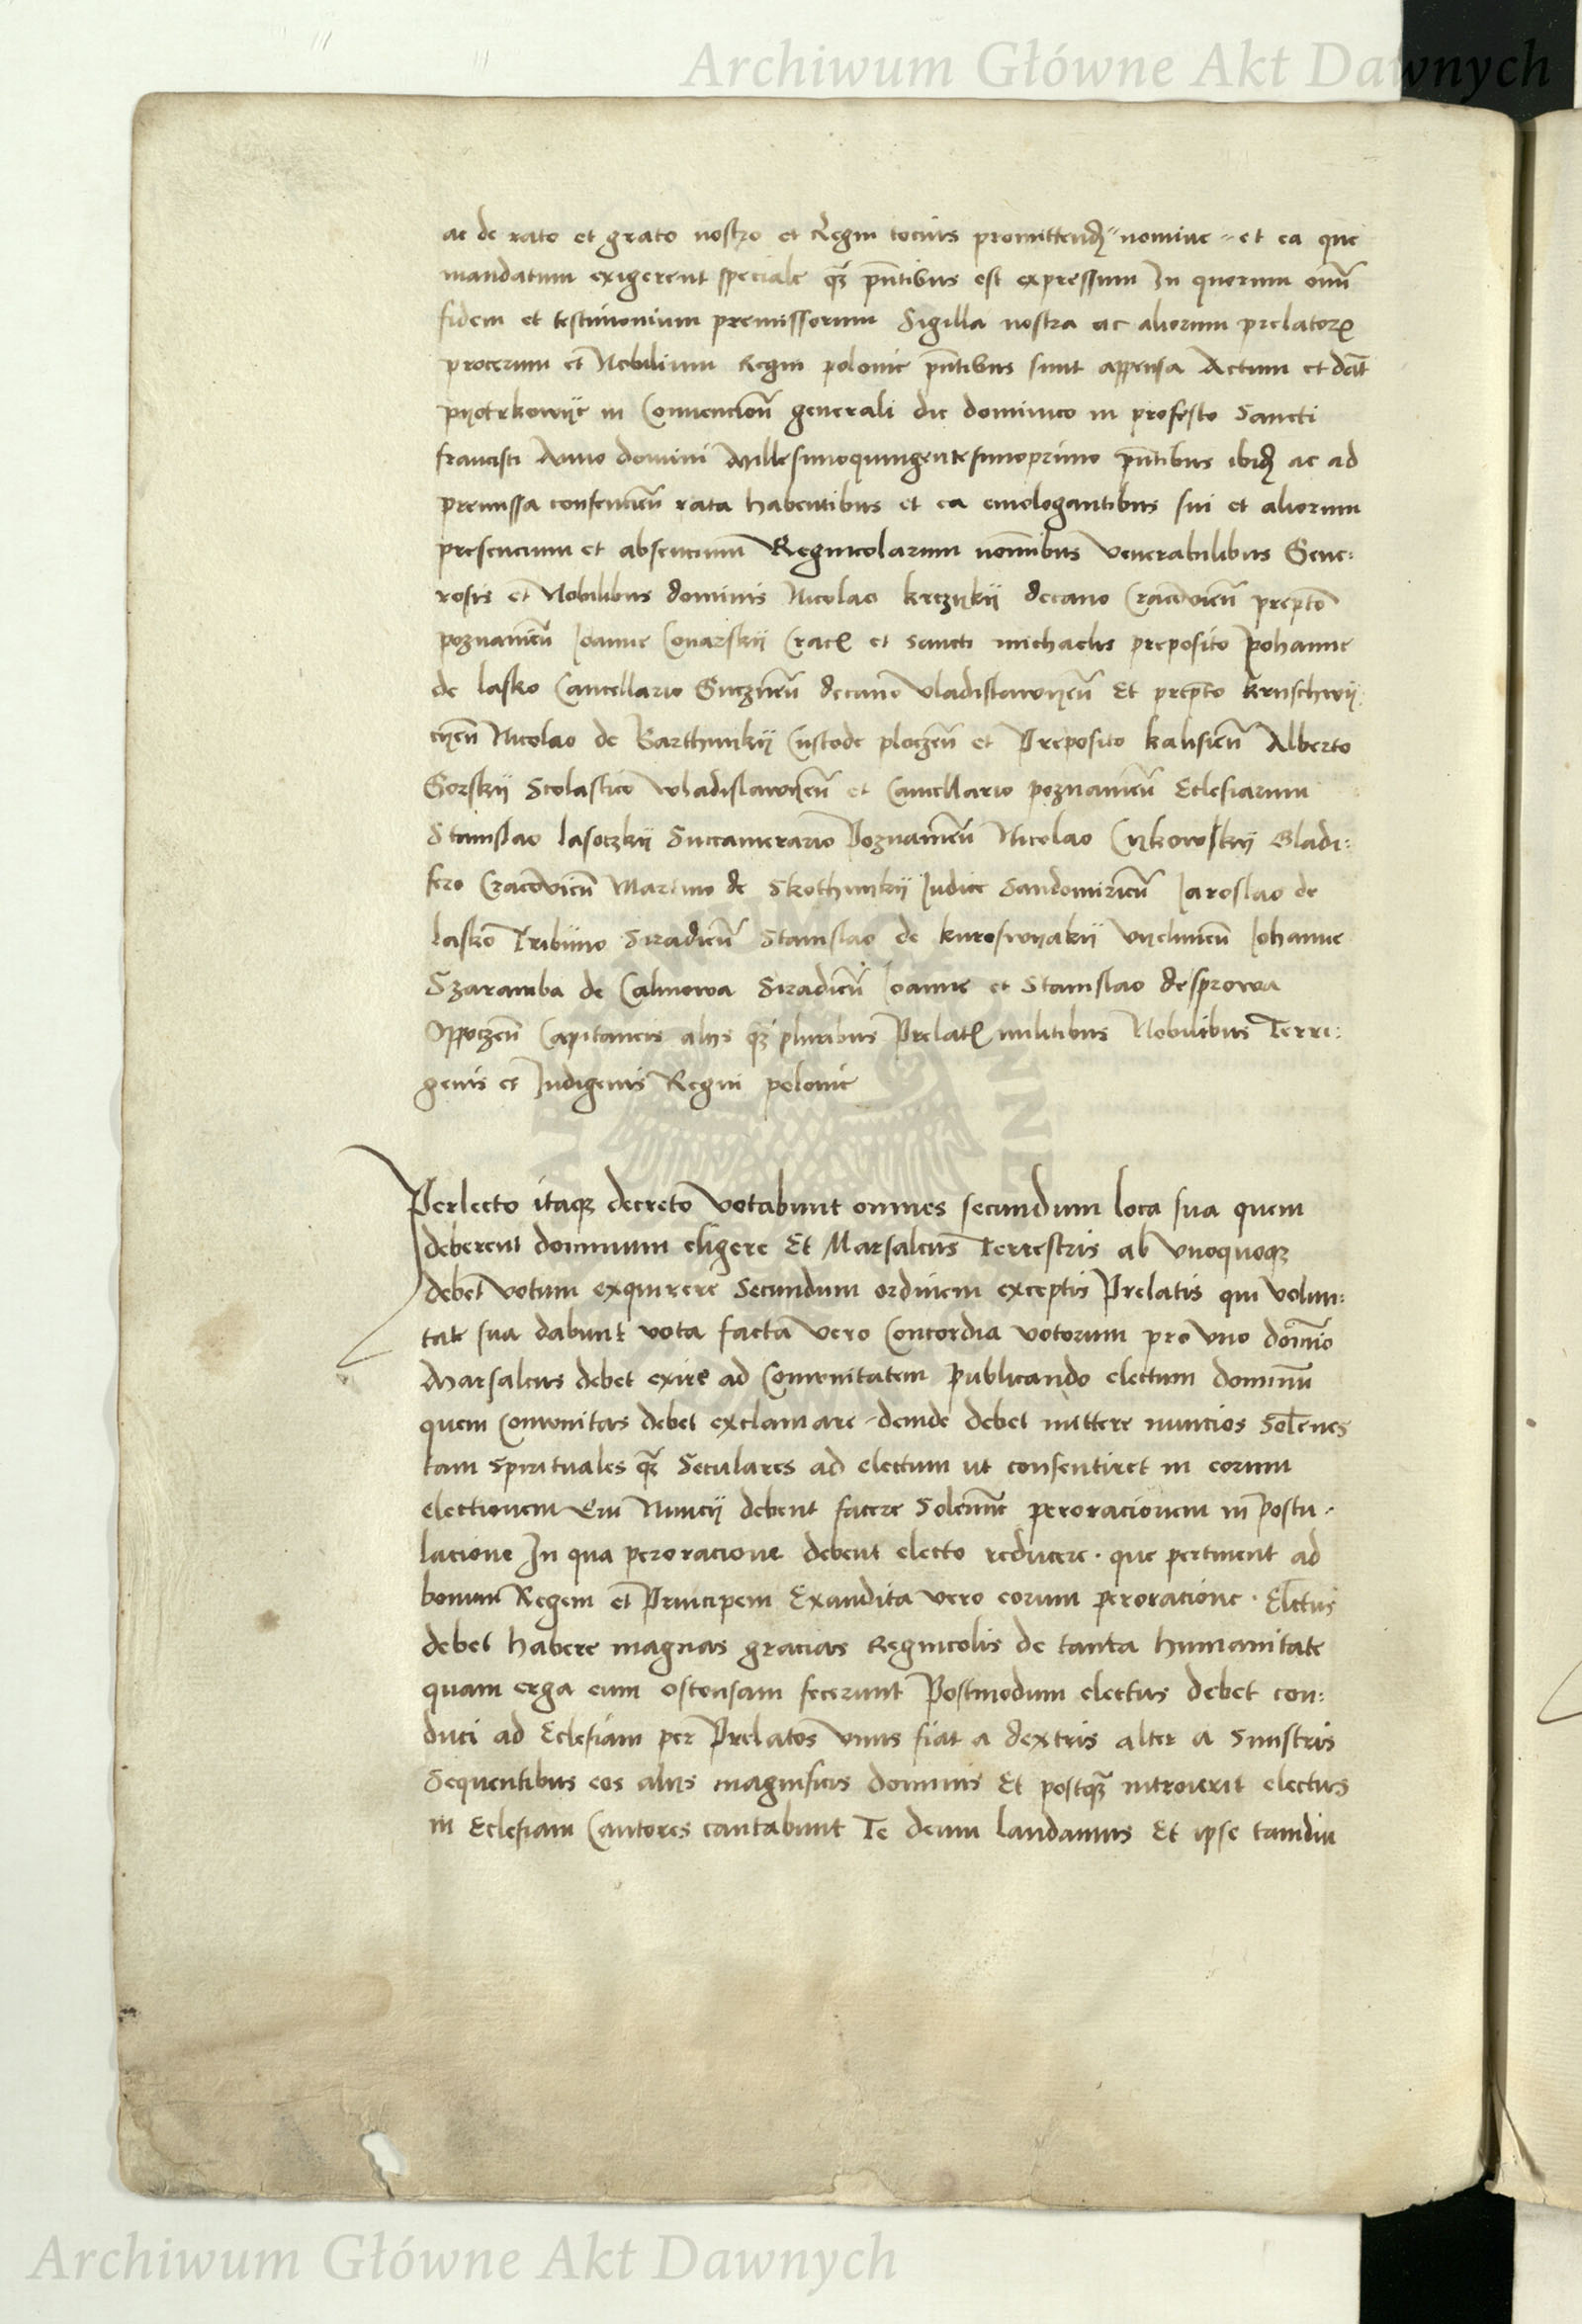 Archiwum Główne Akt Dawnych
ac de rato et grato nostro et Regni tocius promittend nomine et ea que
mandatum exigerent speciale qz pn̄tibus est expressum In quorum om̄i
fidem et testimonium premissorum Sigilla nostra ac aliorum prelatorꝝ
procerum et Nobilium Regni polonie pn̄tibus sunt appensa Actum et dat̄
pyotrkowye in Convencion̄ generali die dominico in profesto Sancti
francisci Anno domini Millesimoquingentesimoprimo pn̄tibus ibid ac ad
premissa consencien̄ rata habentibus et ea emologantibus sui et aliorum
presencium et absencium Regnicolarum noīnibus Venerabilibus Gene:
rosis et Nobilibus dominis Nicolao krczykij decano Cracovien̄ prepto
poznanien̄ Joanne Conarskij Crac et Sancti michaelis preposito Johanne
de lasko Cancellario Gneznen̄ decano Vladislavien̄ Et prepto kruschwij
cyen̄ Nicolao de Barthnikij Custode ploczen̄ et Preposito kalisien̄ Alberto
Gorskij Scolastico Wladislawien̄ et Cancellario poznanien̄ Eclesiarum
Stanislao lasoczkij Succamerario Poznanien̄ Nicolao Cykowskij Gladi:
fero Cracovien̄ Martino de Skothnikij Judice Sandomirien̄ Jaroslao de
lasko Tribuno Siradien̄ Stanislao de kuroswyakij Vyelunen̄ Johanne
Szaramba de Calinowa Siradien̄ Joanne et Stanislao de sprowa
Oppoczen̄ Capitaneis alijs qz pluribus Prelat militibus Nobilibus Terri:
genis et Indigenis Regni polonie
Perlecto itaqz decreto Votabunt omnes secundum loca sua quem
deberent dominum eligere Et Marsalcus Terrestris ab Vnoquoqz
debet votum exquirere Secundum ordinem exceptis Prelatis qui Volun:
tate sua dabunt vota facta vero Concordia votorum pro Vno domīo
Marsalcus debet exire ad Comvnitatem Publicando electum dominū
quem Comvnitas debet exclamare deinde debet mittere nuncios Solēnes
tam Spirituales qz Seculares ad electum ut consentiret in eorum
electionem Qui Nuncij debent facere Solennē peroracionem in postu
lacione In qua peroracione debent electo reducere que pertinent ad
bonum Regem et Principem Exaudita vero eorum peroracione Electus
debet habere magnas gracias Regnicolis de tanta humanitate
quam erga eum ostensam fecerunt Postmodum electus debet con:
duci ad Eclesiam per Prelatos Vnus fiat a dextris alter a Sinistris
Sequentibus eos alijs magnificis dominis Et postqz introierit electus
in Eclesiam Cantores cantabunt Te deum laudamus Et ipse tamdiu
Archiwum Główne Akt Dawnych